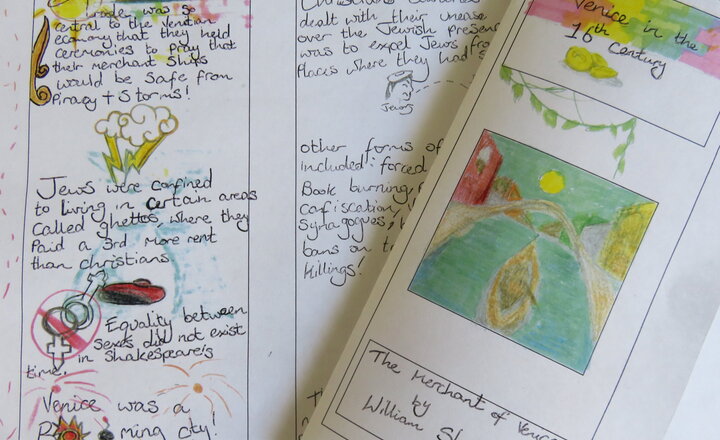 Trade was so
central to the Venetian
economy that they held
ceremonies to pray that
their merchant ships
would be safe from
Piracy + Storms!
Jews were confined
to living in certain areas
called ghettos, where they
Paid a 3rd more rent
than christians
Equality between
sexes did not exist
in Shakespeare's
time.
Venice was a
ming city!
dealt with their unease
over the Jewish presen
was to expel Jews fro
Places where they had s
Jews
other forms of
included: forced
Book burning
confiscation,
Synagogues,
bans on
killings!
Venice in the
16th Century
The Merchant of Venice
by
William Sh